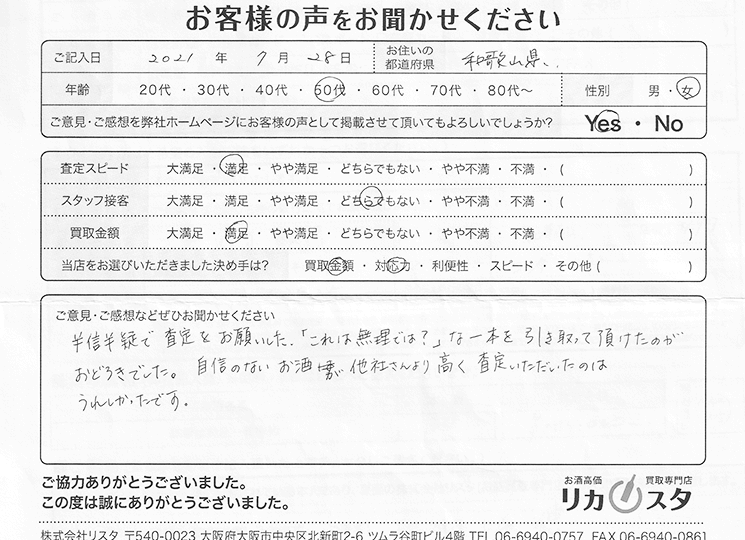 お客様の声をお聞かせください
ご記入日 2021 年 7 月 28 日 お住いの都道府県 和歌山県
年齢 20代 ・ 30代 ・ 40代 ・ 50代 ・ 60代 ・ 70代 ・ 80代〜 性別 男 ・ 女
ご意見・ご感想を弊社ホームページにお客様の声として掲載させて頂いてもよろしいでしょうか? Yes ・ No
査定スピード 大満足 ・ 満足 ・ やや満足 ・ どちらでもない ・ やや不満 ・ 不満 ・ ( )
スタッフ接客 大満足 ・ 満足 ・ やや満足 ・ どちらでもない ・ やや不満 ・ 不満 ・ ( )
買取金額 大満足 ・ 満足 ・ やや満足 ・ どちらでもない ・ やや不満 ・ 不満 ・ ( )
当店をお選びいただきました決め手は? 買取金額 ・ 対応力 ・ 利便性 ・ スピード ・ その他 ( )
ご意見・ご感想などぜひお聞かせください
半信半疑で査定をお願いした。「これは無理では?」な一本を引き取って頂けたのが
おどろきでした。自信のないお酒が他社さんより高く査定いただいたのは
うれしかったです。
ご協力ありがとうございました。
この度は誠にありがとうございます。
お酒高価 買取専門店
リカスタ
株式会社リスタ 〒540-0023 大阪府大阪市中央区北新町2-6 ツムラ谷町ビル4階 TEL 06-6940-0757 FAX 06-6940-0861